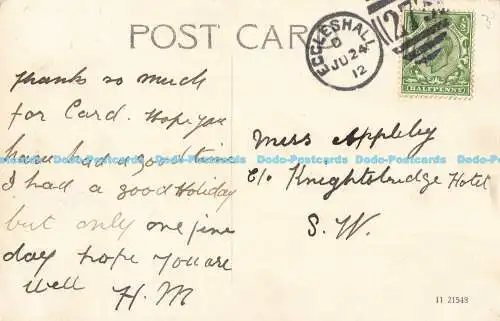 POST CARD
ECCLESHALL
D
JU 24
12
HALFPENNY
Thanks so much
for Card. Hope you
have had a good time
I had a good Holiday
but only one fine
day hope you are
well H.M
Miss Appleby
C/o Knightsbridge Hotel
S. W.
Dodo-Postcards Dodo-Postcards Dodo-Postcards Dodo-Postcards Dodo-Postcards
11 21548